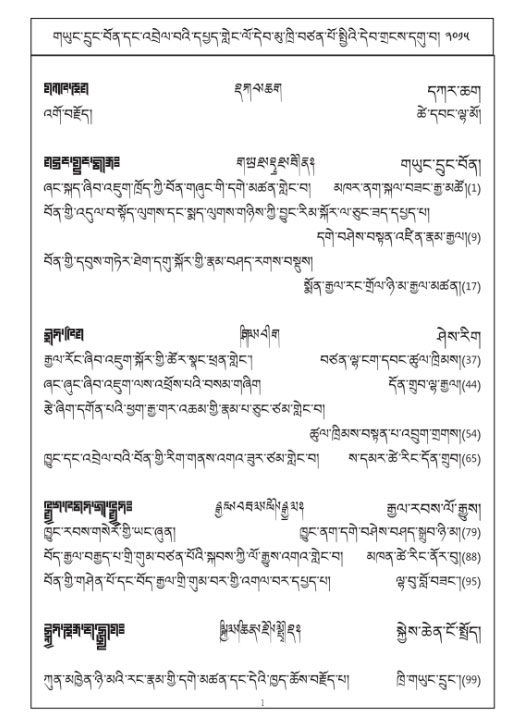 གཡུང་དྲུང་བོན་དང་འབྲེལ་བའི་དཔྱད་གླེང་ལོ་དེབ་མུ་ཁྲི་བཙན་པོ་སྤྱིའི་དེབ་གྲངས་དགུ་བ། ༢༠༡༥
དཀར་ཆག
འགོ་བརྗོད། ཚེ་དབང་ལྷ་མོ།
གཡུང་དྲུང་བོན།
ཞང་སྐད་ཞིབ་འཇུག་ཁྲོད་ཀྱི་བོན་གཞུང་གི་དགེ་མཚན་གླེང་བ། མཁར་ནག་སྐལ་བཟང་རྒྱ་མཚོ།(1)
བོན་གྱི་འདུལ་བ་སྟོད་ལུགས་དང་སྨད་ལུགས་གཉིས་ཀྱི་བྱུང་རིམ་སྐོར་ལ་ཅུང་ཟད་དཔྱད་པ།
དགེ་བཤེས་བསྟན་འཛིན་རྣམ་རྒྱལ།(9)
བོན་གྱི་དབུས་གཏེར་ཐེག་དགུ་སྐོར་གྱི་རྣམ་བཤད་རགས་བསྡུས།
སྨོན་རྒྱལ་རང་གྲོལ་ཉི་མ་རྒྱལ་མཚན།(17)
ཤེས་རིག
རྒྱལ་རོང་ཞིབ་འཇུག་སྐོར་གྱི་ཚོར་སྣང་ཕྲན་གླེང་། བཙན་ལྷ་ངག་དབང་ཚུལ་ཁྲིམས།(37)
ཞང་ཞུང་ཞིབ་འཇུག་ལས་འཕྲོས་པའི་བསམ་གཞིག དོན་གྲུབ་ལྷ་རྒྱལ།(44)
རྩེ་ཞིག་དགོན་པའི་ཕྱག་རྒྱ་གར་འཆམ་གྱི་རྣམ་པ་ཅུང་ཙམ་གླེང་བ།
ཚུལ་ཁྲིམས་བསྟན་པ་འབྲུག་གྲགས།(54)
ཁྱུང་དང་འབྲེལ་བའི་བོན་གྱི་རིག་གནས་འགའ་ཟུར་ཙམ་གླེང་བ། ས་དམར་ཚེ་རིང་དོན་གྲུབ།(65)
རྒྱལ་རབས་ལོ་རྒྱུས།
ཁྱུང་རབས་གསེར་གྱི་ཡང་ཞུན། ཁྱུང་ནག་དགེ་བཤེས་བཤད་སྒྲུབ་ཉི་མ།(79)
བོད་རྒྱལ་བརྒྱད་པ་གྲི་གུམ་བཙན་པོའི་སྐབས་ཀྱི་ལོ་རྒྱུས་འགའ་གླེང་བ། མཁན་ཚེ་རིང་ནོར་བུ།(88)
བོན་གྱི་གཤེན་པོ་དང་བོད་རྒྱལ་གྲི་གུམ་བར་གྱི་འགལ་བར་དཔྱད་པ། ལྷ་བུ་བློ་བཟང་།(95)
སྐྱེས་ཆེན་ངོ་སྤྲོད།
ཀུན་མཁྱེན་ཉི་མའི་རང་རྣམ་གྱི་དགེ་མཚན་དང་དེའི་ཁྱད་ཆོས་བརྗོད་པ། ཁྲི་གཡུང་དྲུང་།(99)
1